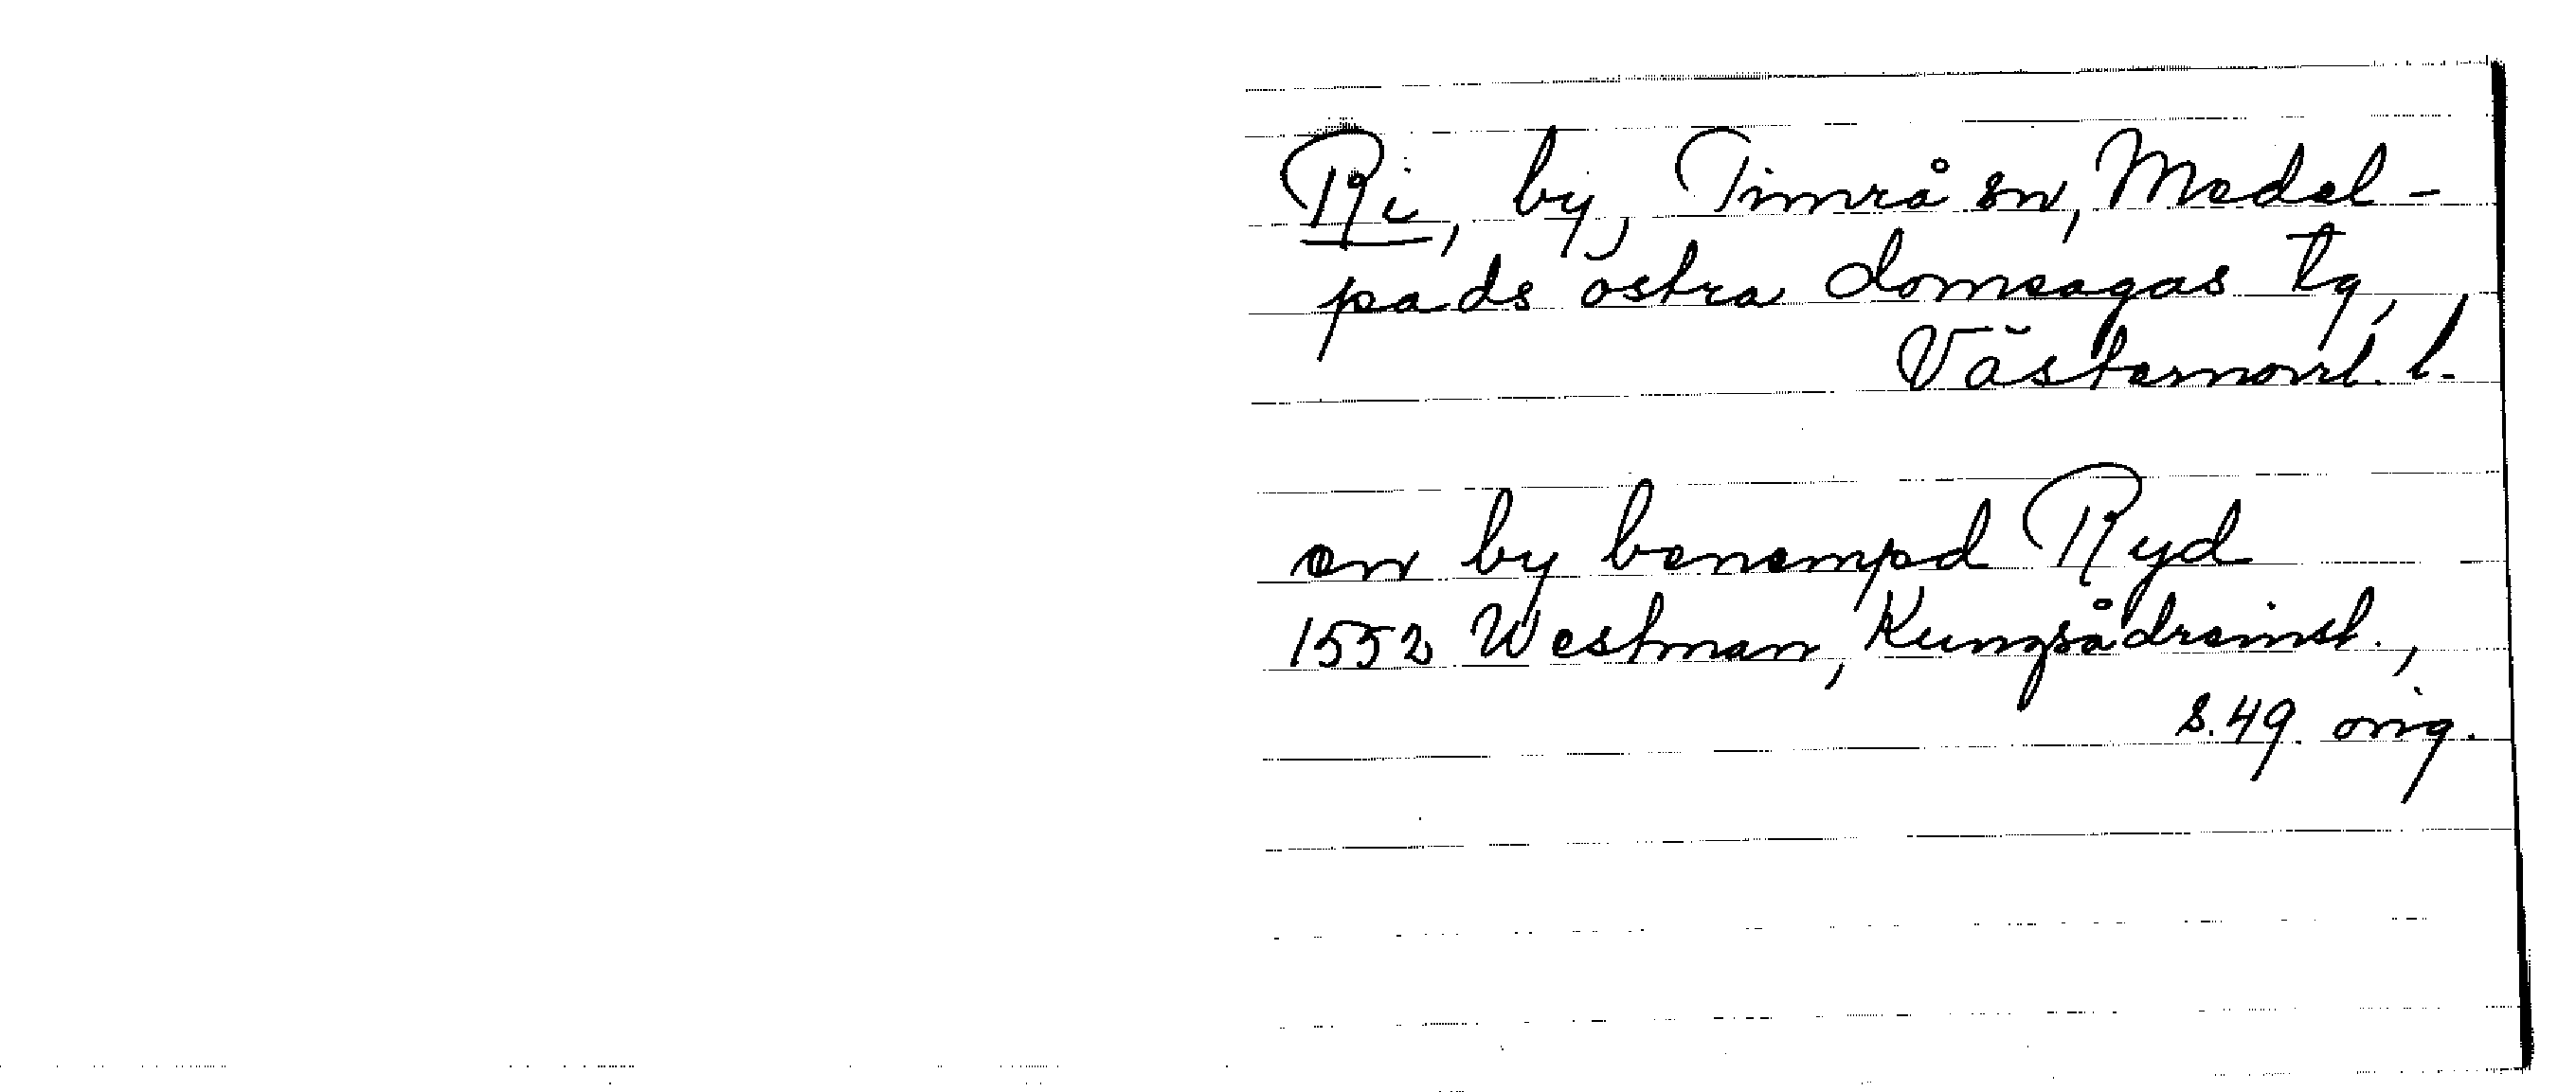 Ri, by, Timrå sn, Medel-
pads östra domsagas tg,
Västernorrl. l.
en by benempd Ryd
1552 Westman, Kungsådreinst.,
s. 49. orig.